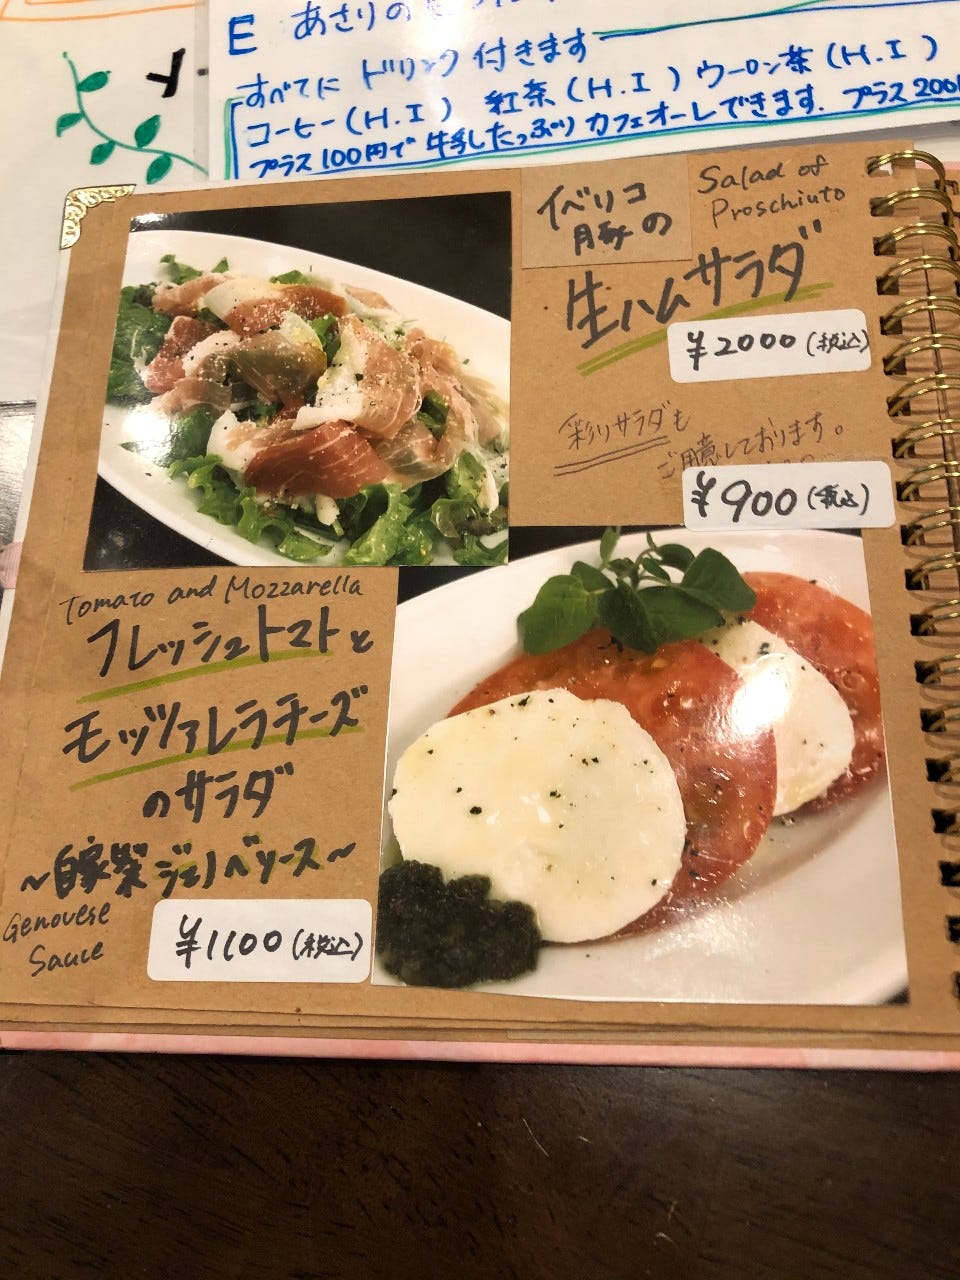 E あさりの
すべてに ドリンク 付きます
コーヒー(H.I) 紅茶(H.I) ウーロン茶(H.I)
プラス100円で 牛乳たっぷり カフェオーレできます. プラス200
イベリコ
豚の
Salad of
Proschiuto
生ハムサラダ
¥2000(税込)
彩りサラダも
ご用意しております。
¥900(税込)
Tomato and Mozzarella
フレッシュトマトと
モッツァレラチーズ
のサラダ
~自家製ジェノベソース~
Genovese
Sauce
¥1100(税込)